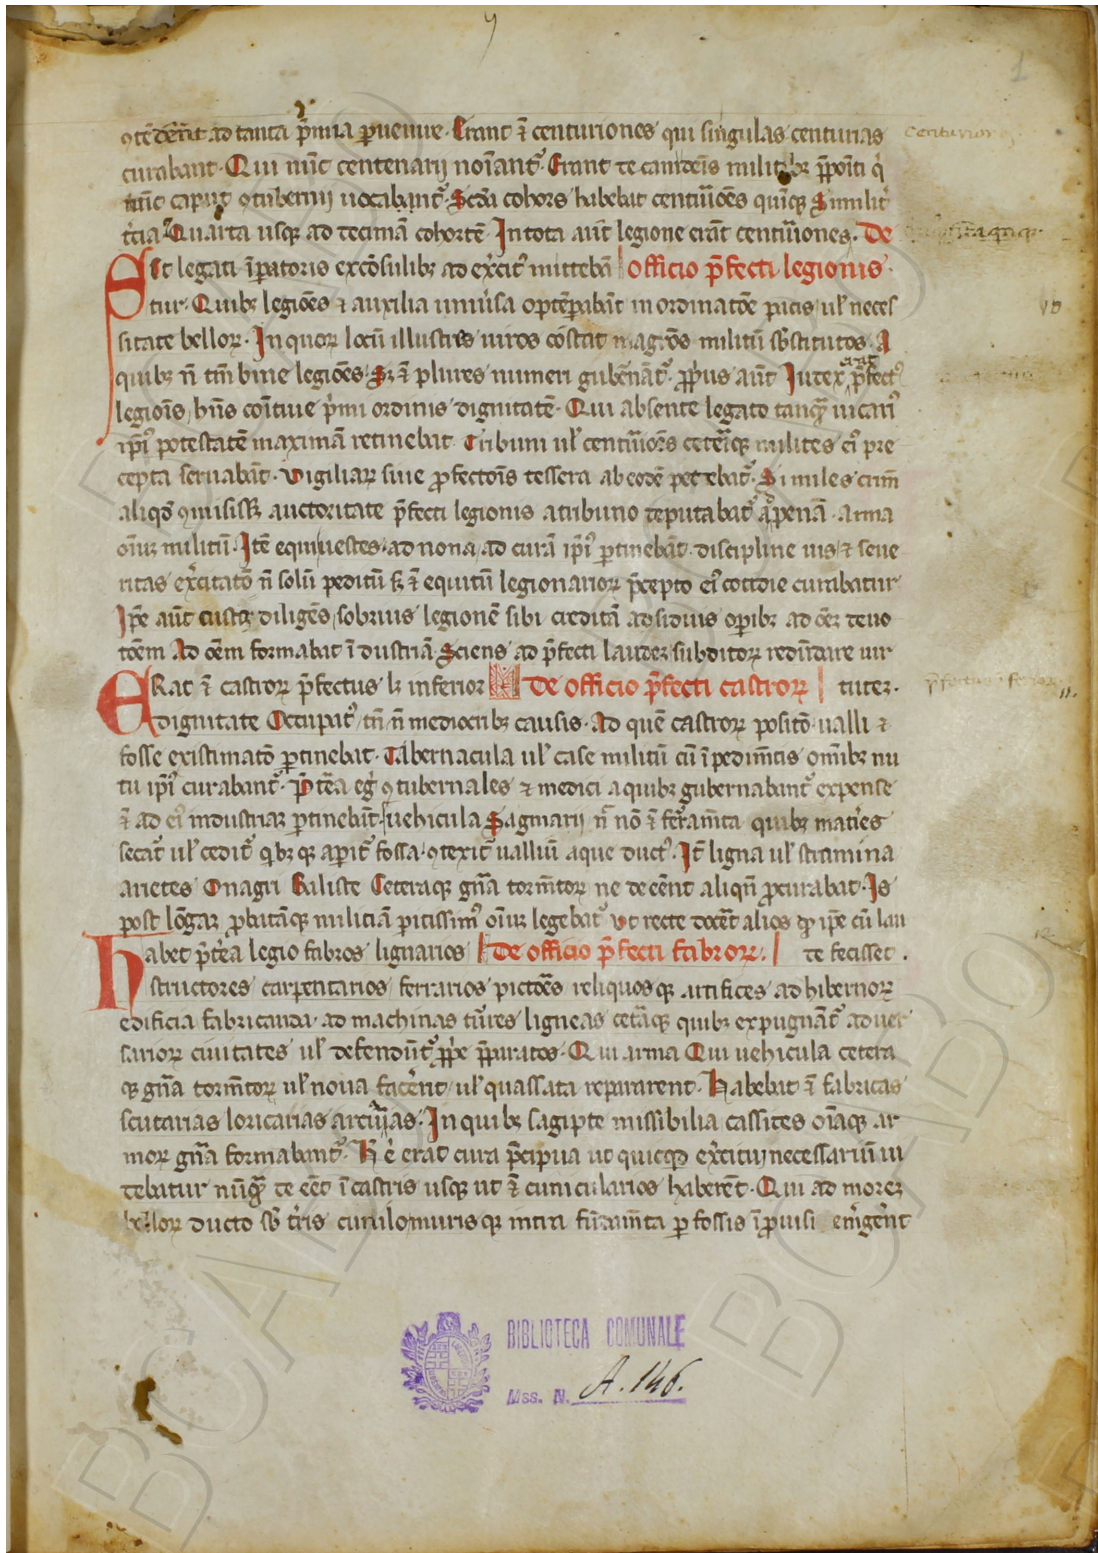 9
1
ꝯtēdēnt ad tanta p̄mia ꝑuenire. Erant ē centuriones qui singulas centurias
Centurion
curabant. Qui nūc centenarij noīant᷑. Erant decani deīs militibꝫ p̄poīti q̇
nūc caput ꝯtubernij uocabant᷑. Scḋa cohors habebat centuīōes quīqꝫ Similit᷑
t̄cia Quarta usqꝫ ad decimā cohortē. In tota aūt legione erāt centuīones. De
Set legati īꝑatoris ex cōsulibꝫ ad ex̄cit᷑ mittebā officio p̄fecti legionis.
tur. Quibꝫ legiōes ⁊ auxilia uniu̇sa optēꝑabāt in ordinatōe pacis ul̓ neces
sitate belloꝝ. In quoꝝ locū illustres uiros cōstat magr̄os militū sb̄stitutos. A
quibꝫ n̄ tm̄ bine legiōes. Sꝫ ē plures numeri gub̄nāt᷑. ꝓp̄us aūt Iudex p̄fect᷒
legiōis, hn̄s com̄itiue p̄mi ordinis dignitatē. Qui absente legato tanqꝫ uicari᷒
ip̄i᷒ potestatē maximā retinebat. Tribuni ul̓ centuīōes ceteīqꝫ milites ei᷒ pre
cepta seruabāt. Vigiliaꝝ siue ꝓfectōis tessera ab eodē petebat᷑. Si miles crim̄
aliqḋ ꝯmisissꝫ auctoritate p̄fecti legionis a tribuno deputabat᷑ ad penā. arma
oīuꝫ militū. Itē equi, uestes, adnona, ad curā ip̄i᷒ ꝑtinebāt. discipline ius, ⁊ seue
ritas ex̄citatō n̄ solū peditū sꝫ ē equitū legionarioꝝ p̄cepto ei᷒ cottdie curabatur
Ip̄e aūt iust᷒ diligēs, sobrius legionē sibi creditā adsiduis oꝑibꝫ ad oēꝫ deuo
tōem Ad oēm formabat īdustriā. Sciens ad p̄fecti laudeꝫ subditoꝝ redūdare uir
ERat ē castroꝝ p̄fectus lꝫ inferior de officio p̄fecti castroꝝ tuteꝫ.
dignitate Occupat᷒, tn̄ n̄ mediocribꝫ causis. Ad quē castroꝝ positō. ualli ⁊
fosse existimatō ꝑtinebat. Tabernacula ul̓ case militū cū īpedim̄tis om̄ibꝫ nu
tu ip̄i᷒ curabant᷑. P̄tēa eġ ꝯtubernales ⁊ medici a quibꝫ gubernabant᷑ expense
ē ad ei᷒ industriaꝝ ꝑtinebāt. uehicula Sagmarij n̄ nō ē ferram̄ta quibꝫ mat̄ies
secat᷑ ul̓ cedit᷑ qi̇bꝫqꝫ aꝑit᷑ fossa. ꝯtexit᷑ uallum aque duct᷒. It̄ ligna ul̓ stramina
arietes Onagri Baliste Ceteraqꝫ gn̄a torm̄toꝝ ne deeēnt aliqn̄ ꝓcurabat. Is
post lōgaꝝ ꝓbatāqꝫ miliciā ꝑitissim᷒ oīuꝫ legebat᷑ Vt recte docēt alios qḋ ip̄e cū lau
habet p̄tēa legio fabros lignarios De officio p̄fecti fabroꝝ. de fecisset.
structores carpentarios ferrarios pictōes reliquosqꝫ artifices ad hibernoꝝ
edificia fabricanda. ad machinas tu̇res ligneas cetāqꝫ quibꝫ expugnāt᷑ aduer
sarioꝝ ciuitates ul̓ defendūt᷑ ꝓp̄e p̄paratos. Qui arma Qui uehicula cetera
qꝫ gn̄a torm̄toꝝ ul̓ noua facēnt, ul̓ quassata repararent. Habebāt ē fabricas
scutarias loricarias arcuarias. In quibꝫ sagipte missibilia cassides oīaqꝫ ar
moꝝ gn̄a formabant᷑. H̄ ē erat cura p̄cipua ut quicqḋ ex̄citui necessariū ui
debatur nūqꝫ deeēt ī castris usqꝫ ut ē cunicularios haberēt. Qui ad moreꝫ
belloꝝ ducto sb̄ t̄ris cuniculo murisqꝫ intra fūdam̄ta ꝑfossis īꝓuisi em̄gēnt
BIBLIOTECA COMUNALE
Mss. N. A. 146.